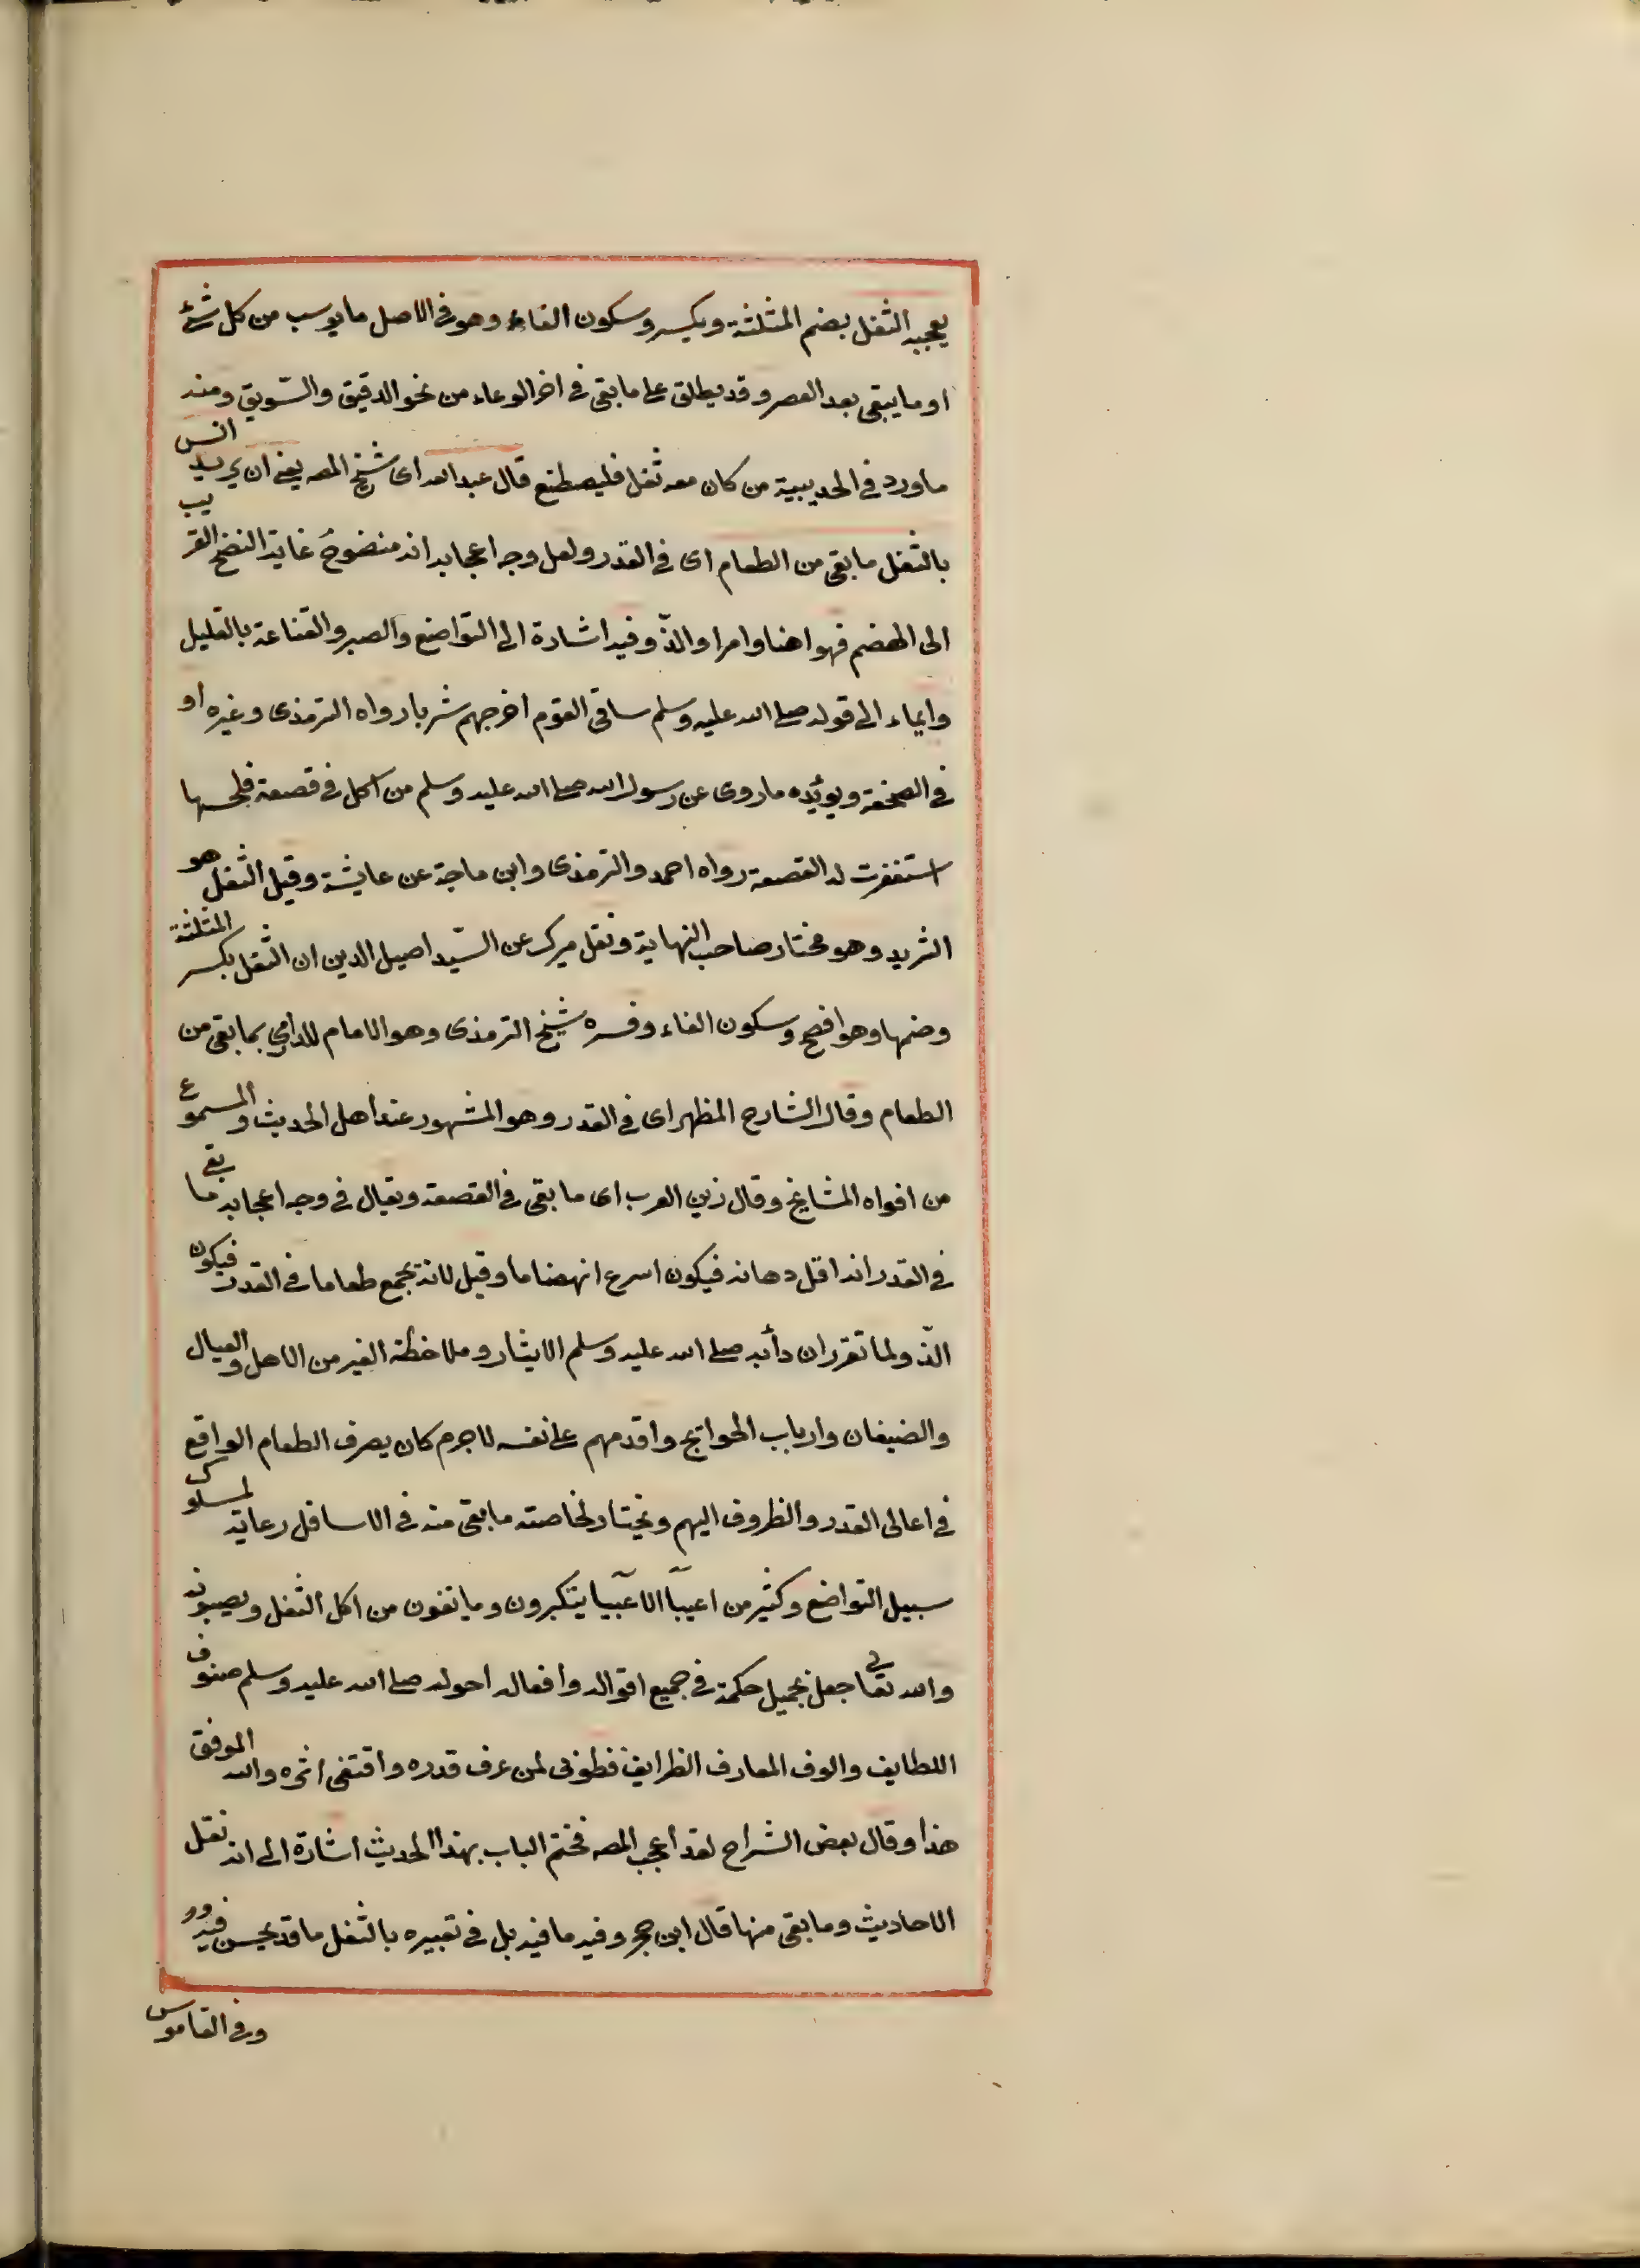 يعجبه الثفل بضم المثلثة ويكسر وسكون الفاء وهو فى الاصل ما يرسب من كل شئ
او ما يبقى بعد العصر وقد يطلق على ما بقى فى اخر الوعاء من نحو الدقيق والسّويق ومنه
ما ورد فى الحديبية من كان معه ثفل فليصطنع قال عبد الله اى شيخ المصـ يعنى ان يريد انس
بالثفل ما بقى من الطعام اى فى القدر ولعل وجه اعجابه انه منضوج غاية النضج القريب
الى الهضم فهو اهنا وامرا والذّ وفيه اشارة الى التواضع والصبر والقناعة بالقليل
وايماء الى قوله صلى الله عليه وسلم ساقى القوم اخرجهم شربا رواه الترمذى وغيره او
فى الصحفة ويؤيده ما روى عن رسول الله صلى الله عليه وسلم من اكل فى قصعة فلحسها
استغفرت له القصعة رواه احمد والترمذى وابن ماجة عن عايشة وقيل الثفل هو
الثريد وهو مختار صاحب النهاية ونقل ميرك عن السّيد اصيل الدين ان الثفل بكسر المثلثة
وضمها وهو افصح وسكون الفاء وفسره شيخ الترمذى وهو الامام للدارمى بما بقى من
الطعام وقال الشارح المظهر اى فى القدر وهو المشهور عند اهل الحديث والمسموع
من افواه المشايخ وقال زين العرب اى ما بقى فى القصعة ويقال فى وجه اعجابه ما بقى
فى القدر انه اقل دهانه فيكون اسرع انهضاما وقيل لانه يجمع طعاما فى القدر فيكون
الذّ ولما تقرر ان دأبه صلى الله عليه وسلم الايثار وملاحظة الغير من الاهل والعيال
والضيفان وارباب الحوائج واقدمهم على نفسه لاجرم كان يصرف الطعام الواقع
فى اعالى القدر والظروف اليهم ويختار لخاصته ما بقى منه فى الاسافل رعاية لسلوك
سبيل التواضع وكثير من اغبيآ الاغنيآ يتكبرون وما يقون من اكل الثفل ويصبونه
والله تعالى جعل بجميل حكمة فى جميع اقواله وافعاله احوله صلى الله عليه وسلم صنوف
اللطايف والوف المعارف الظرايف فطوبى لمن عرف قدره واقتفى اثره والله الموفق
هذا وقال بعض الشراح لقد اعجب المصـ فختم الباب بهذا الحديث اشارة الى انه نقل
الاحاديث وما بقى منها قال ابن حجر وفيه ما فيه بل فى تعبيره بالثفل ما قد يحسن فيه وو
وفى القاموس